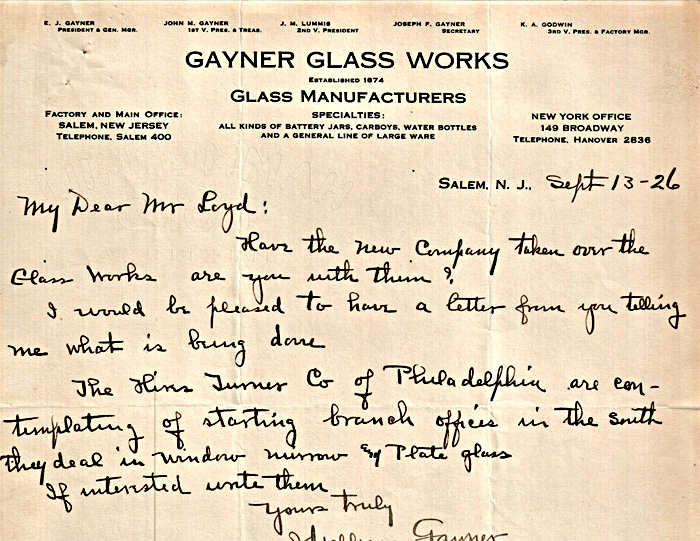 E. J. GAYNER
PRESIDENT & GEN. MGR.
JOHN M. GAYNER
1ST V. PRES. & TREAS.
J. M. LUMMIS
2ND V. PRESIDENT
JOSEPH F. GAYNER
SECRETARY
K. A. GODWIN
3RD V. PRES. & FACTORY MGR.
GAYNER GLASS WORKS
ESTABLISHED 1874
GLASS MANUFACTURERS
FACTORY AND MAIN OFFICE:
SALEM, NEW JERSEY
TELEPHONE, SALEM 400
SPECIALTIES:
ALL KINDS OF BATTERY JARS, CARBOYS, WATER BOTTLES
AND A GENERAL LINE OF LARGE WARE
NEW YORK OFFICE
149 BROADWAY
TELEPHONE, HANOVER 2836
SALEM, N. J., Sept 13-26
My Dear Mr Loyd:
Have the new Company taken over the
Glass Works are you with them?
I would be pleased to have a letter from you telling
me what is being done
The Hires Turner Co of Philadelphia are con-
templating of starting branch offices in the south
they deal in window mirrow & Plate glass
If interested write them
Yours truly
Gayner